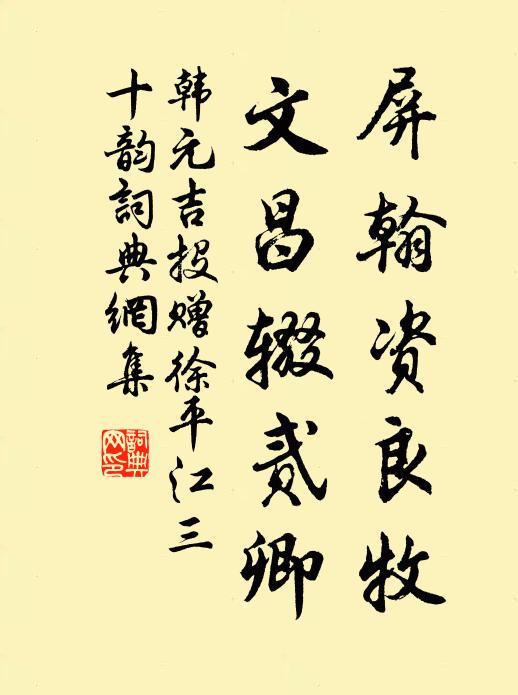 屏翰资良牧
文昌辍贰卿
韩元吉投赠徐平江三
十韵詞典網集
詞典网印